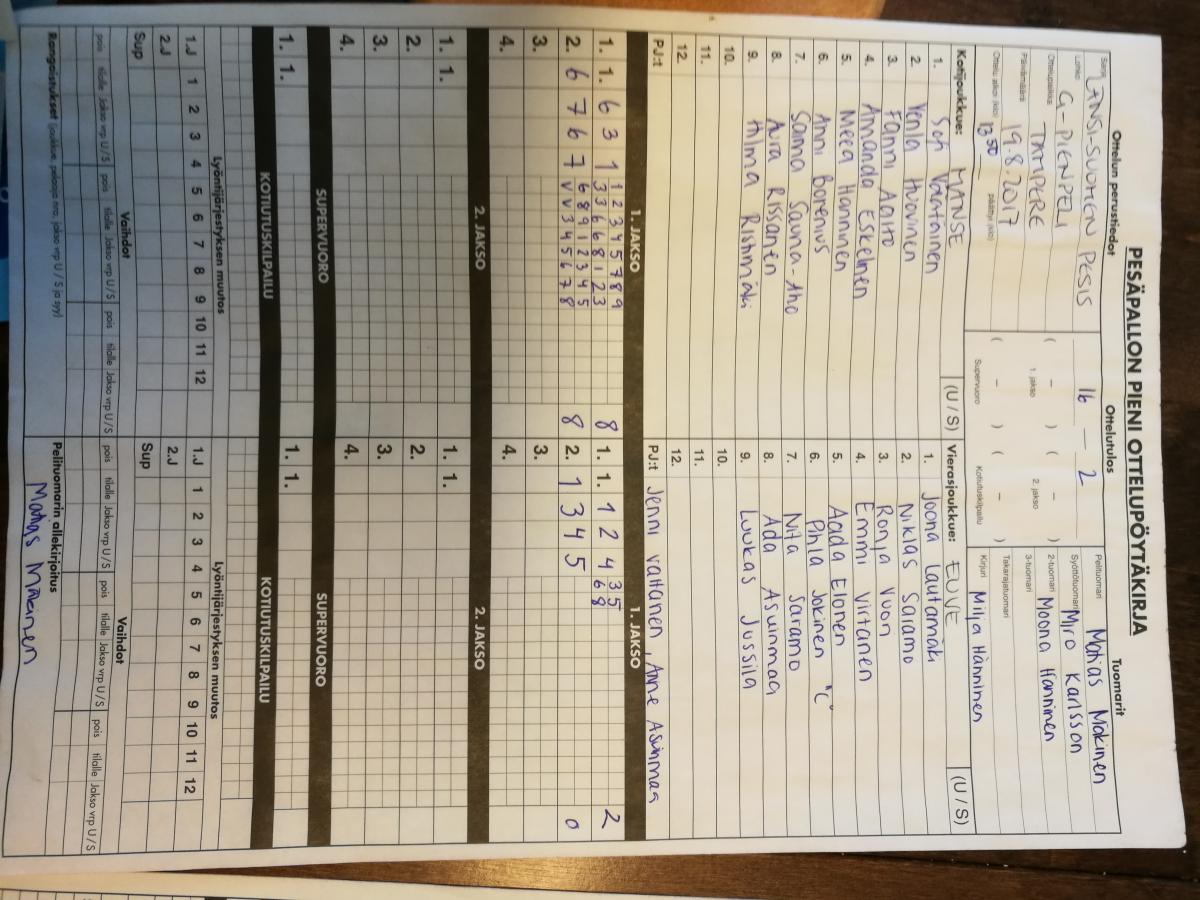 PESÄPALLON PIENI OTTELUPÖYTÄKIRJA
Ottelun perustiedot
Sarja LÄNSI-SUOMEN PESIS
Lohko G-PIENPELI
Ottelupaikka TAMPERE
Päivämäärä 19.8.2017
Ottelu alkoi (klo) 1350 päättyi (klo)
Ottelutulos
16 – 2
( – ) ( – )
1. jakso 2. jakso
( – ) ( – )
Supervuoro Kotiutuskilpailu
Tuomarit
Pelituomari Matias Mäkinen
Syöttötuomari Miro Karlsson
2-tuomari Moona Hänninen
3-tuomari
Takarajatuomari
Kirjuri Milja Hänninen
Kotijoukkue: MANSE (U / S)
1. Sofi Vaatainen
2. Venla Huovinen
3. Fanni Aalto
4. Amanda Eskelinen
5. Meea Hänninen
6. Anni Borenius
7. Sanna Sauna-Aho
8. Aura Rissanen
9. Hilma Ristimäki
10.
11.
12.
PJ:t
Vierasjoukkue: EUVE (U / S)
1. Joona Lautamäki
2. Niklas Saramo
3. Ronja Vuori
4. Emmi Virtanen
5. Aada Elonen
6. Pihla Jokinen "C"
7. Nita Saramo
8. Ada Asuinmaa
9. Luukas Jussila
10.
11.
12.
PJ:t Jenni Valtanen, Anne Asuinmaa
1. JAKSO 1. JAKSO
1 2 3 4 5 7 8 9
1. 1. 6 3 1 3 3 6 6 8 1 2 3 8
6 8 9 1 2 3 4 5
2. 6 7 6 7 V V 3 4 5 6 7 8 8
1. 1. 1 2 4 3 5 2
6 8
2. 1 3 4 5 0
3. 3.
4. 4.
2. JAKSO 2. JAKSO
1. 1. 1. 1.
2. 2.
3. 3.
4. 4.
SUPERVUORO SUPERVUORO
1. 1. 1. 1.
KOTIUTUSKILPAILU KOTIUTUSKILPAILU
Lyöntijärjestyksen muutos Lyöntijärjestyksen muutos
1.J 1 2 3 4 5 6 7 8 9 10 11 12 1.J 1 2 3 4 5 6 7 8 9 10 11 12
2.J 2.J
Sup Sup
Vaihdot Vaihdot
pois tilalle Jakso vrp U / S pois tilalle Jakso vrp U / S pois tilalle Jakso vrp U / S pois tilalle Jakso vrp U / S pois tilalle Jakso vrp U / S pois tilalle Jakso vrp U / S
Rangaistukset (joukkue, pelaaja nro, jakso vrp U / S ja syy)
Pelituomarin allekirjoitus
Matias Mäkinen